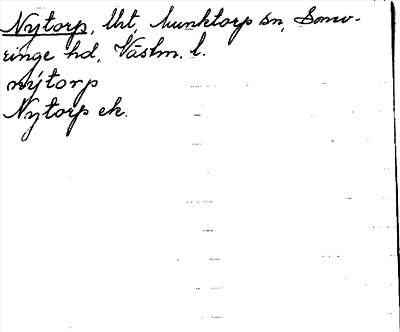 Nytorp, lht, Munktorp sn, Snev-
ringe hd, Västm. l.
nýtorp
Nytorp ek.